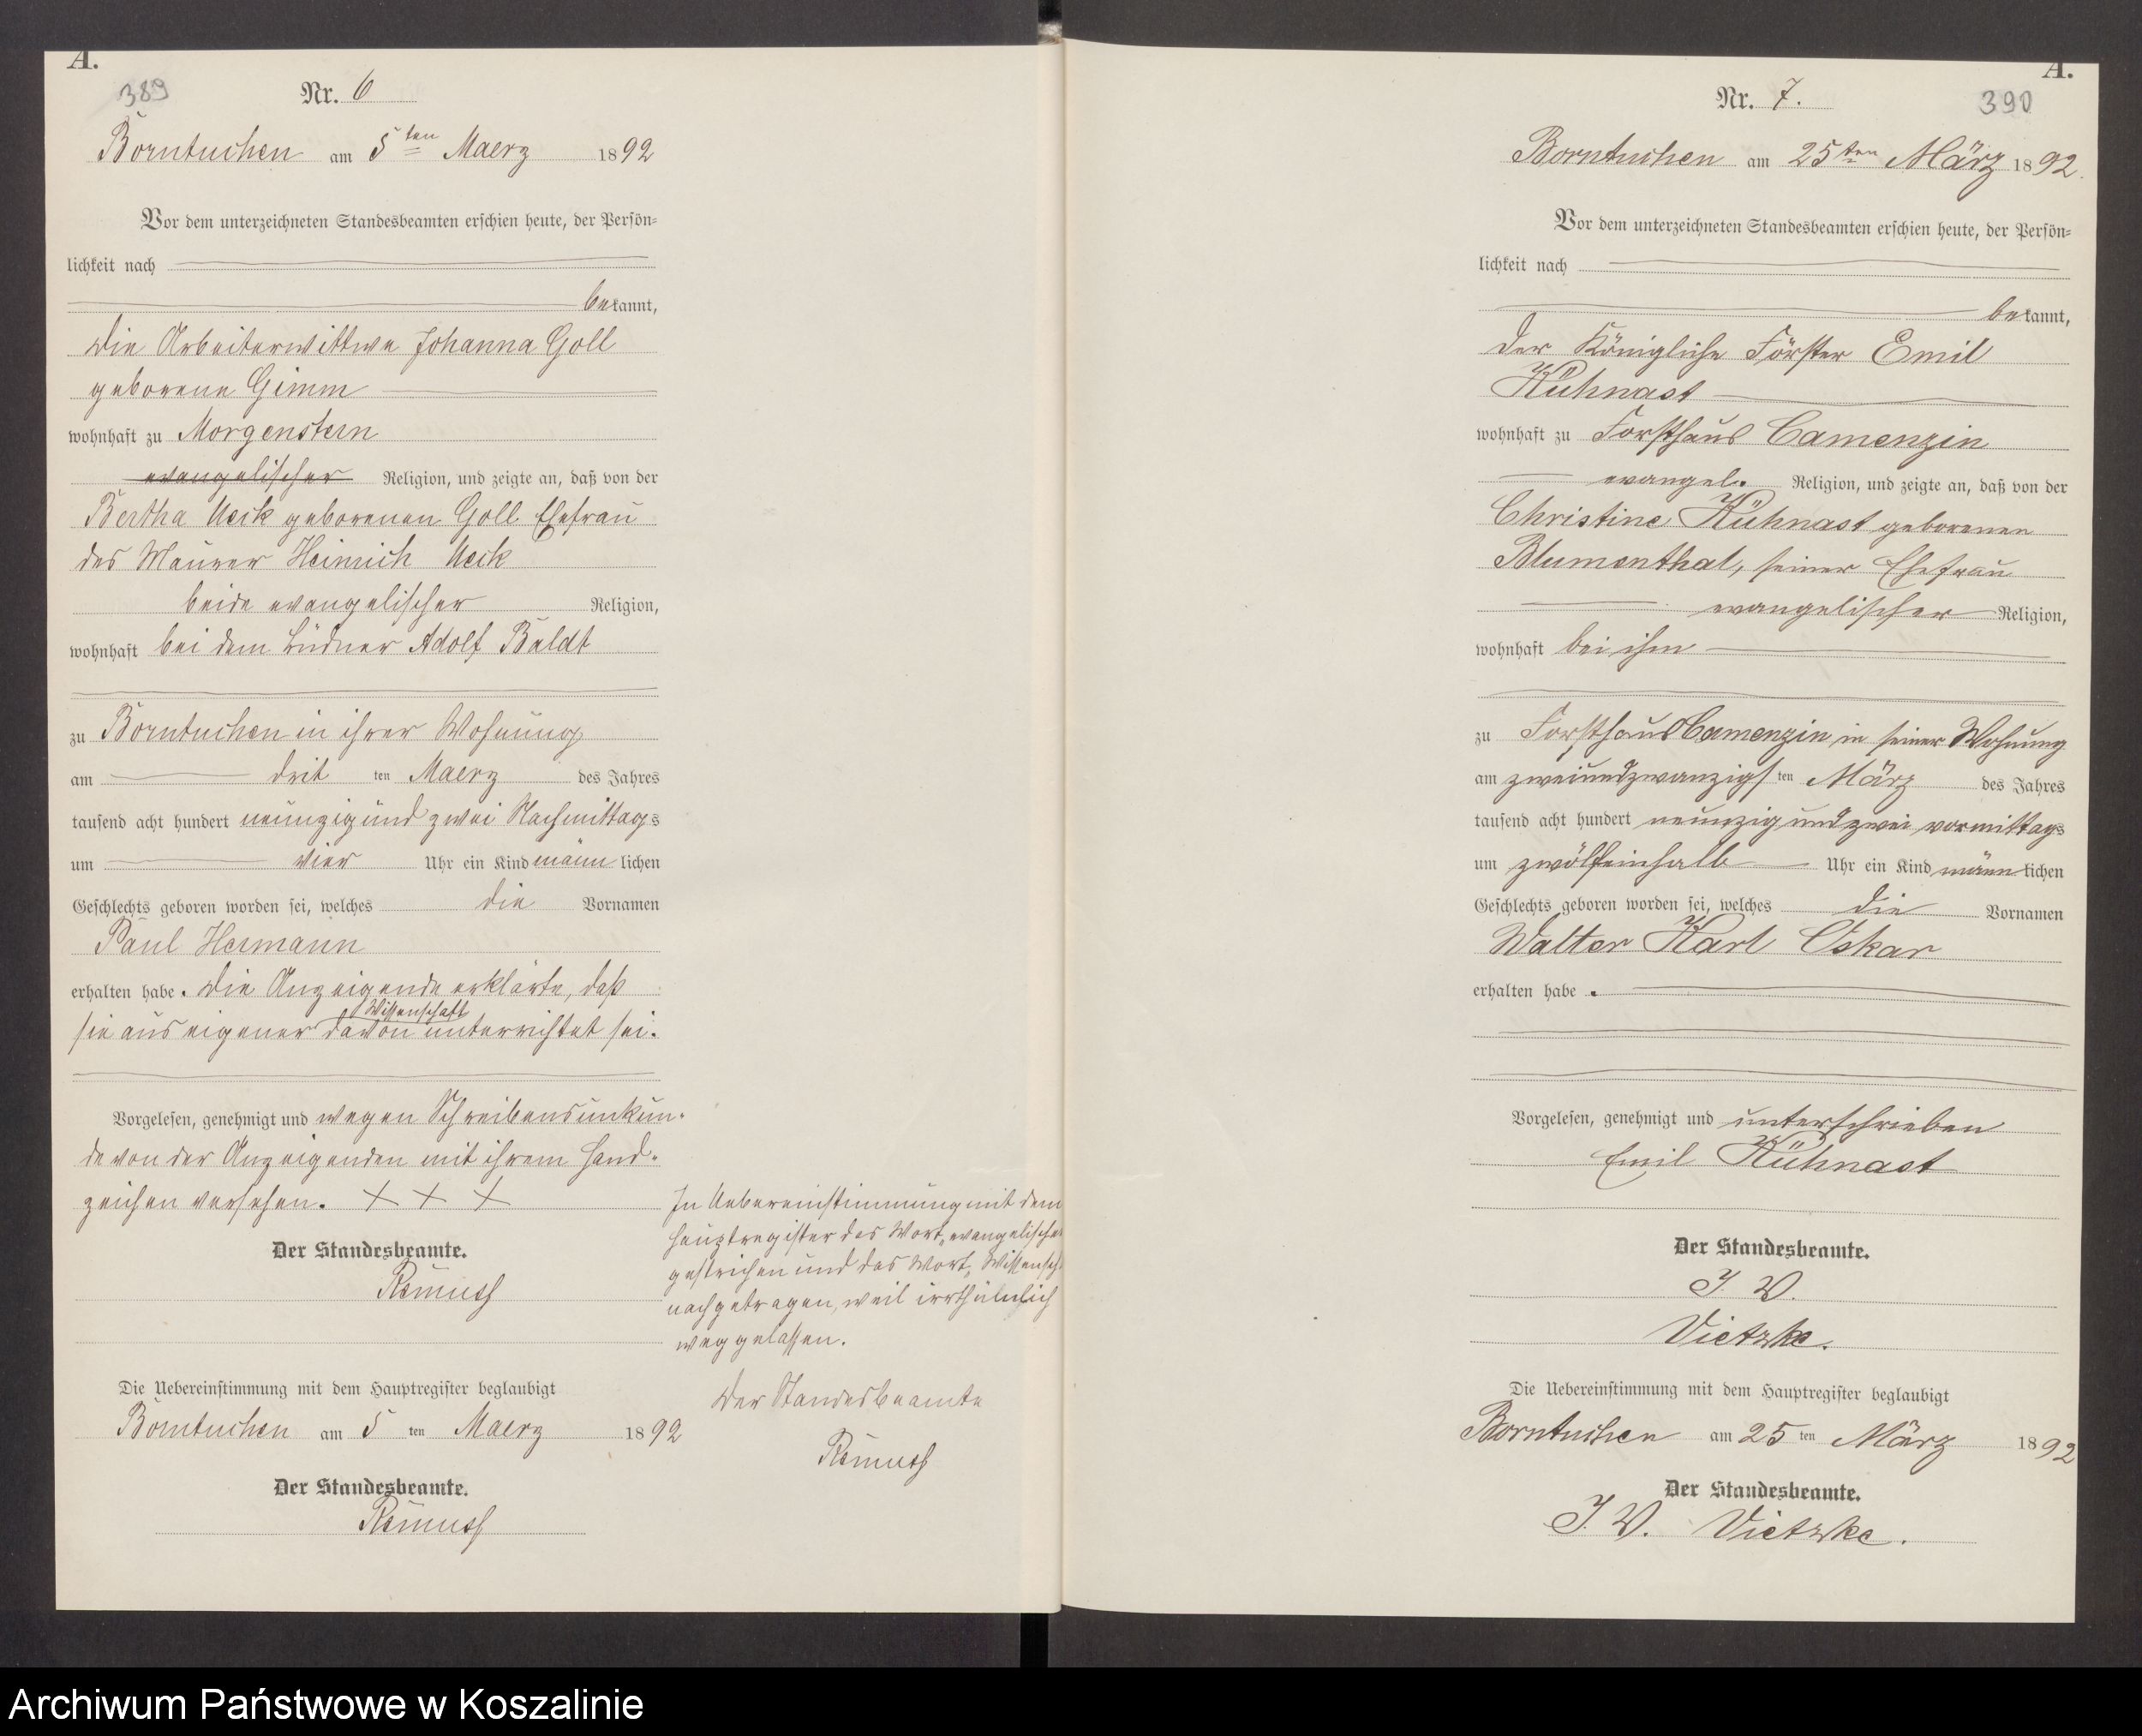 A.
389
Nr. 6
Borntuchen am 5ten Maerz 1892
Vor dem unterzeichneten Standesbeamten erschien heute, der Persön-
lichkeit nach
bekannt,
die Arbeiterwittwe Johanna Goll
geborene Gimm
wohnhaft zu Morgenstern
evangelischer Religion, und zeigte an, daß von der
Bertha Ueck geborenen Goll Ehefrau
des Maurer Heinrich Ueck
beide evangelischer Religion,
wohnhaft bei dem Büdner Adolf Baldt
zu Borntuchen in ihrer Wohnung
am dritten Maerz des Jahres
tausend acht hundert neunzig und zwei Nachmittags
um vier Uhr ein Kind männlichen
Geschlechts geboren worden sei, welches die Vornamen
Paul Hermann
erhalten habe. Die Anzeigende erklärte, daß
Wissenschaft
sie aus eigener davon unterrichtet sei.
Vorgelesen, genehmigt und wegen Schreibensunkun-
de von der Anzeigenden mit ihrem Hand-
zeichen versehen. + + +
Der Standesbeamte.
Die Uebereinstimmung mit dem Hauptregister beglaubigt
Borntuchen am 5 ten Maerz 1892
Der Standesbeamte.
In Uebereinstimmung mit dem
Hauptregister das Wort „evangelischer
gestrichen und das Wort „Wissensch
nachgetragen, weil irrthümlich
weggelassen.
Der Standesbeamte
A.
Nr. 7.
390
Borntuchen am 25ten März 1892.
Vor dem unterzeichneten Standesbeamten erschien heute, der Persön-
lichkeit nach
bekannt,
der Königliche Förster Emil
Kühnast
wohnhaft zu Forsthaus Camenzin
evangel. Religion, und zeigte an, daß von der
Christine Kühnast geborenen
Blumenthal, seiner Ehefrau
evangelischer Religion,
wohnhaft bei ihm
zu Forsthaus Camenzin in seiner Wohnung
am zweiundzwanzigsten März des Jahres
tausend acht hundert neunzig und zwei vormittags
um zwölfeinhalb Uhr ein Kind männlichen
Geschlechts geboren worden sei, welches die Vornamen
Walter Karl Oskar
erhalten habe.
Vorgelesen, genehmigt und unterschrieben
Emil Kühnast
Der Standesbeamte.
J. V.
Vietzke.
Die Uebereinstimmung mit dem Hauptregister beglaubigt
Borntuchen am 25 ten März 1892
Der Standesbeamte.
J. V. Vietzke.
Archiwum Państwowe w Koszalinie